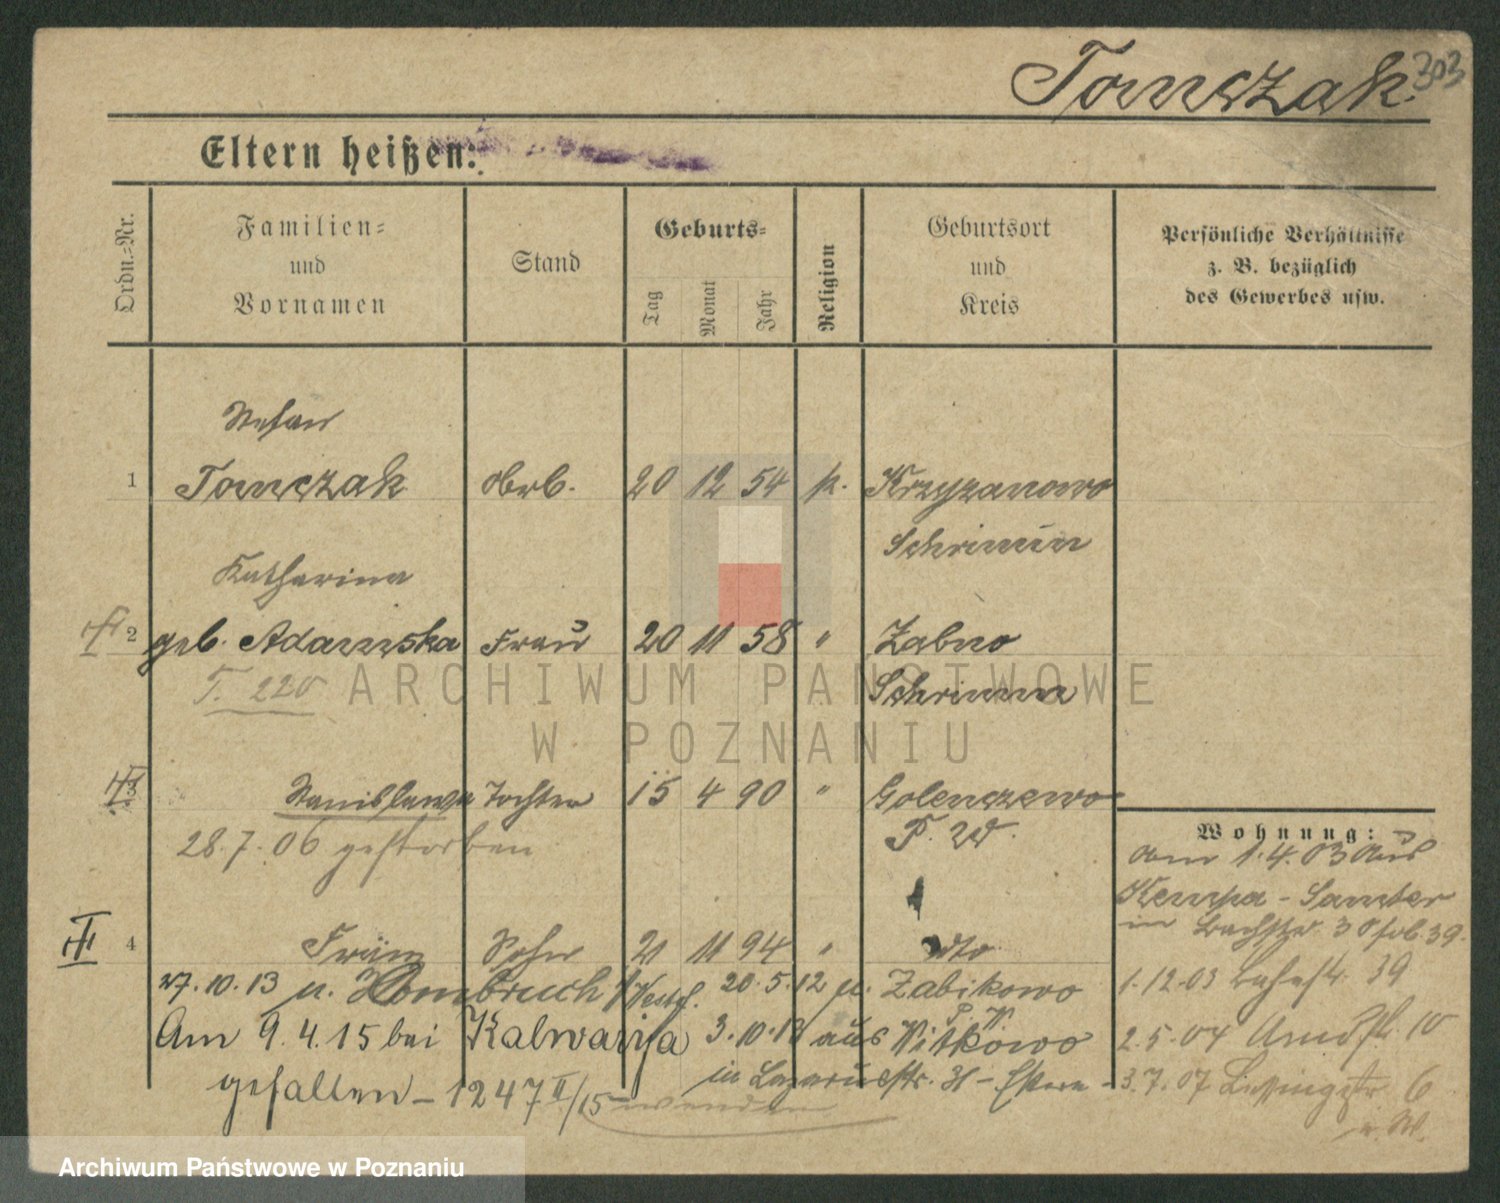 Tomczak 303
Eltern heißen:
Ordn.=Nr.
Familien=
und
Vornamen
Stand
Geburts=
Tag
Monat
Jahr
Religion
Geburtsort
und
Kreis
Persönliche Verhältnisse
z. B. bezüglich
des Gewerbes usw.
Stefan
1 Tomczak Arb. 20 12 54 k. Krzyzanowo
Schrimm
Katharina
2 geb. Adamska Frau 20 11 58 " Zabno
T. 220 Schrimm
3 Stanislawa Tochter 15 4 90 " Golenczewo
28.7.06 gestorben P. W.
Wohnung:
am 1.4.03 aus
Kempa - Samter
in 39.
4 Franz Sohn 21 11 94 " dto
27.10.13 n. Hombruch /Westf. 20.5.12 n. Zabikowo
P. W.
1.12.03 39
Am 9.4.15 bei Kalwarya 3.10.12 aus Witkowo
2.5.04 10
gefallen - 1247 II/15 in Lazarusstr. - Eltern -
3.7.07 Lessingstr 6
wenden
Archiwum Państwowe w Poznaniu
ARCHIWUM PAŃSTWOWE
W POZNANIU